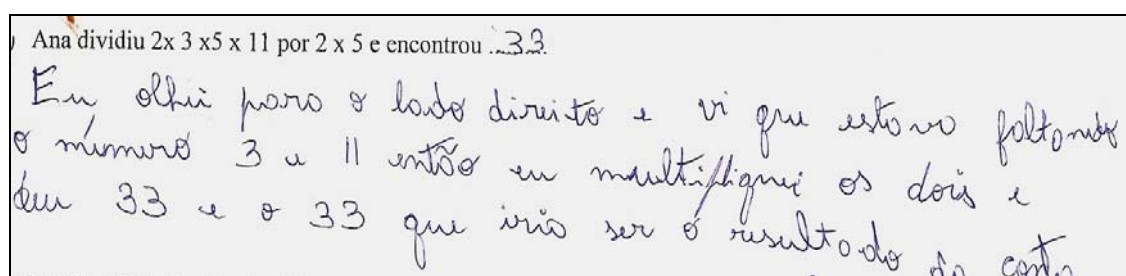 ) Ana dividiu 2x 3 x5 x 11 por 2 x 5 e encontrou ...33
Eu olhei para o lado direito e vi que estava faltando
o número 3 e 11 então eu multipliquei os dois e
deu 33 e o 33 que iria ser o resultado da conta